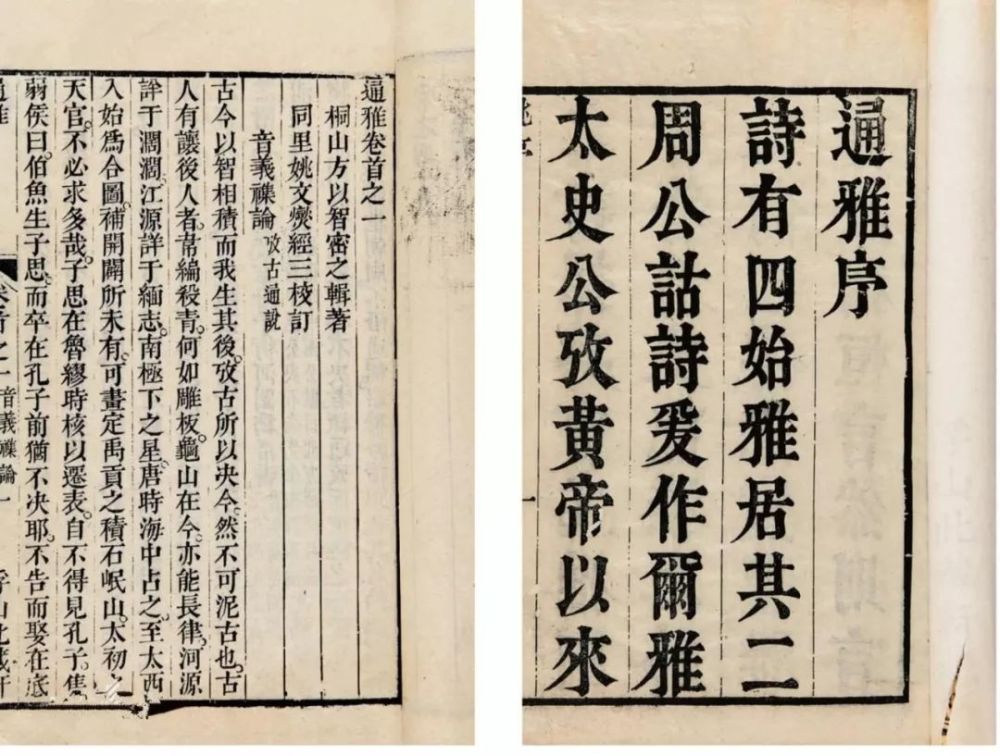 通雅序
詩有四始雅居其二
周公詁詩爰作爾雅
太史公攷黄帝以來
一
通雅卷首之一
桐山方以智密之輯著
同里姚文燮經三校訂
音義襍論 攷古通說
古今以智相積而我生其後。攷古所以决今。然不可泥古也。古
人有讓後人者。韋編殺青。何如雕板。龜山在今。亦能長律。河源
詳于濶濶。江源詳于緬志。南極下之星。唐時海中占之。至太西
入始爲合圖。補開闢所未有。可畫定禹貢之積石岷山。太初
天官。不必求多哉。子思在魯繆時核以遷表。自不得見孔子。焦
弱侯曰。伯魚生子思。而卒在孔子前。猶不决耶。不告而娶。在底
通雅 卷首之一 音義襍論 一